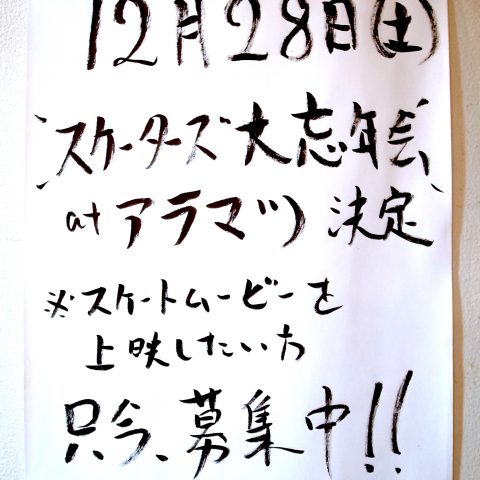 12月28日(土)
スケーターズ大忘年会
at アラマツ 決定
※スケートムービーを
上映したい方
只今、募集中!!